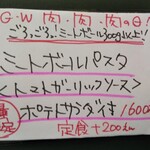 G・W 肉・肉・肉の日！
ごろ、ごろ、ミートボール300g以上！
ミートボールパスタ
＜トマトガーリックソース＞
ポテトサラダつき 1600
定食＋200